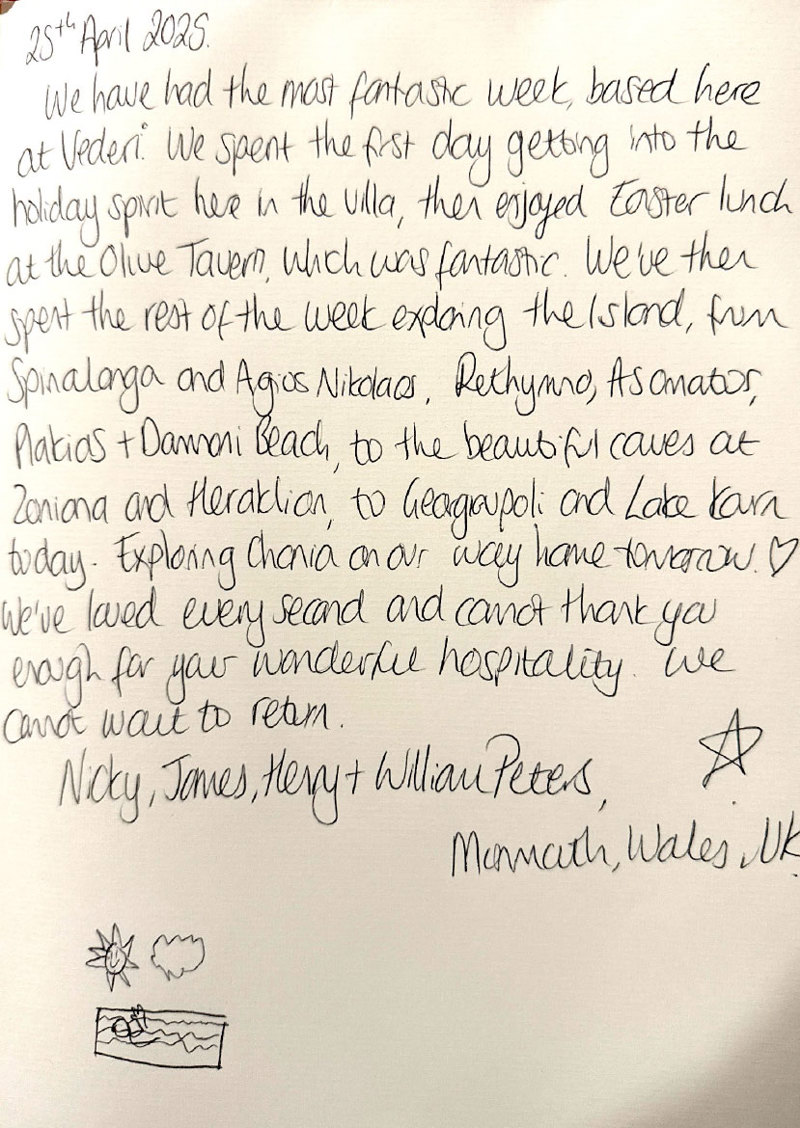 25th April 2025.
We have had the most fantastic week, based here
at Vederi. We spent the first day getting into the
holiday spirit here in the villa, then enjoyed Easter lunch
at the Olive Tavern, which was fantastic. We've then
spent the rest of the week exploring the Island, from
Spinalonga and Agios Nikolaos, Rethymno, Asomatos,
Plakias + Damnoni Beach, to the beautiful caves at
Zoniana and Heraklion, to Georgioupoli and Lake Korn
today. Exploring Chania on our way home tomorrow. ♡
We've loved every second and cannot thank you
enough for your wonderful hospitality. We
cannot wait to return.
Nicky, James, Henry + William Peters,
Monmouth, Wales, UK.